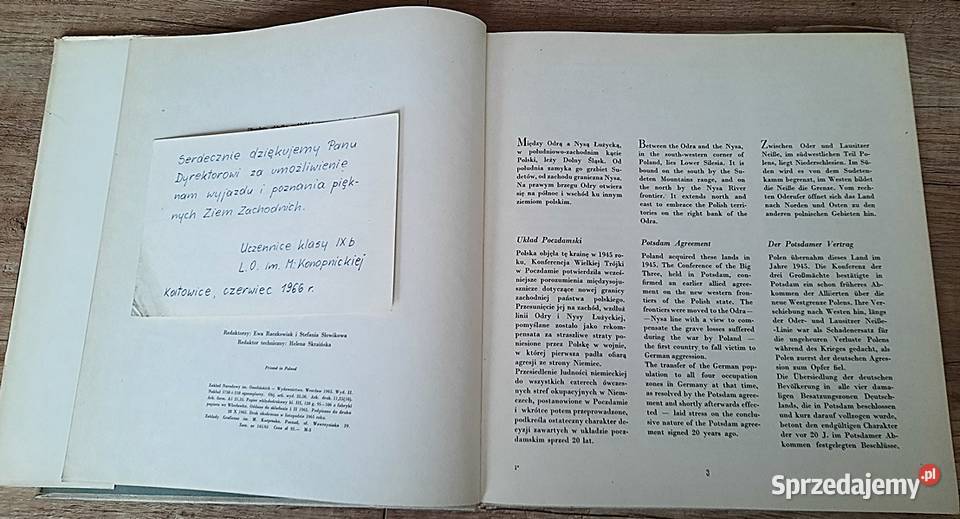 Serdecznie dziękujemy Panu
Dyrektorowi za umożliwienie
nam wyjazdu i poznania pięk-
nych Ziem Zachodnich.
Uczennice klasy IX b
L.O. im. M. Konopnickiej
Katowice, czerwiec 1966 r.
Redaktorzy: Ewa Raczkowiak i Stefania Słowikowa
Redaktor techniczny: Helena Skraińska
Printed in Poland
Zakład Narodowy im. Ossolińskich — Wydawnictwo. Wrocław 1965. Wyd. II.
Między Odrą a Nysą Łużycką,
w południowo-zachodnim kącie
Polski, leży Dolny Śląsk. Od
południa zamyka go grzbiet Su-
detów, od zachodu graniczna Nysa.
Na prawym brzegu Odry otwiera
się na północ i wschód ku innym
ziemiom polskim.
Układ Poczdamski
Polska objęła tę krainę w 1945 ro-
ku. Konferencja Wielkiej Trójki
w Poczdamie potwierdziła wcześ-
niejsze porozumienia międzysoju-
sznicze dotyczące nowej granicy
zachodniej państwa polskiego.
Przesunięcie jej na zachód, wzdłuż
linii Odry i Nysy Łużyckiej,
pomyślane zostało jako rekom-
pensata za straszliwe straty po-
niesione przez Polskę w wojnie,
w której pierwsza padła ofiarą
agresji ze strony Niemiec.
Przesiedlenie ludności niemieckiej
do wszystkich czterech ówczes-
nych stref okupacyjnych w Niem-
czech, postanowione w Poczdamie
i wkrótce potem przeprowadzone,
podkreśla ostateczny charakter de-
cyzji zawartych w układzie pocz-
damskim sprzed 20 lat.
1*
Between the Odra and the Nysa,
in the south-western corner of
Poland, lies Lower Silesia. It is
bound on the south by the Su-
deten Mountains range, and on
the north by the Nysa River
frontier. It extends north and
east to embrace the Polish terri-
tories on the right bank of the
Odra.
Potsdam Agreement
Poland acquired these lands in
1945. The Conference of the Big
Three, held in Potsdam, con-
firmed an earlier allied agree-
ment on the new western fron-
tiers of the Polish state. The
frontiers were moved to the Odra—
—Nysa line with a view to com-
pensate the grave losses suffered
during the war by Poland —
the first country to fall victim to
German aggression.
The transfer of the German pop-
ulation to all four occupation
zones in Germany at that time,
as resolved by the Potsdam agree-
ment and shortly afterwards effec-
ted — laid stress on the conclu-
sive nature of the Potsdam agree-
ment signed 20 years ago.
3
Zwischen Oder und Lausitzer
Neiße, im südwestlichen Teil Po-
lens, liegt Niederschlesien. Im Sü-
den wird es von dem Sudeten-
kamm begrenzt, im Westen bildet
die Neiße die Grenze. Vom rech-
ten Oderufer öffnet sich das Land
nach Norden und Osten zu den
anderen polnischen Gebieten hin.
Der Potsdamer Vertrag
Polen übernahm dieses Land im
Jahre 1945. Die Konferenz der
drei Großmächte bestätigte in
Potsdam ein schon früheres Ab-
kommen der Alliierten über die
neue Westgrenze Polens, Ihre Ver-
schiebung nach Westen hin, längs
der Oder- und Lausitzer Neiße-
-Linie war als Schadenersatz für
die ungeheuren Verluste Polens
während des Krieges gedacht, als
Polen zuerst der deutschen Agres-
sion zum Opfer fiel.
Die Übersiedlung der deutschen
Bevölkerung in alle vier dama-
ligen Besatzungszonen Deutsch-
lands, die in Potsdam beschlossen
und kurz darauf vollzogen wurde,
betont den endgültigen Charakter
der vor 20 J. im Potsdamer Ab-
kommen festgelegten Beschlüsse.
Sprzedajemy.pl